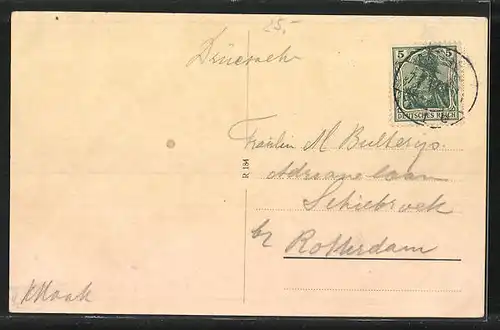 25,-
Drucksache
5 5
DEUTSCHES REICH
Fräulin M Bultersys.
Adrianalaan
Schiebroek
by Rotterdam
R 194